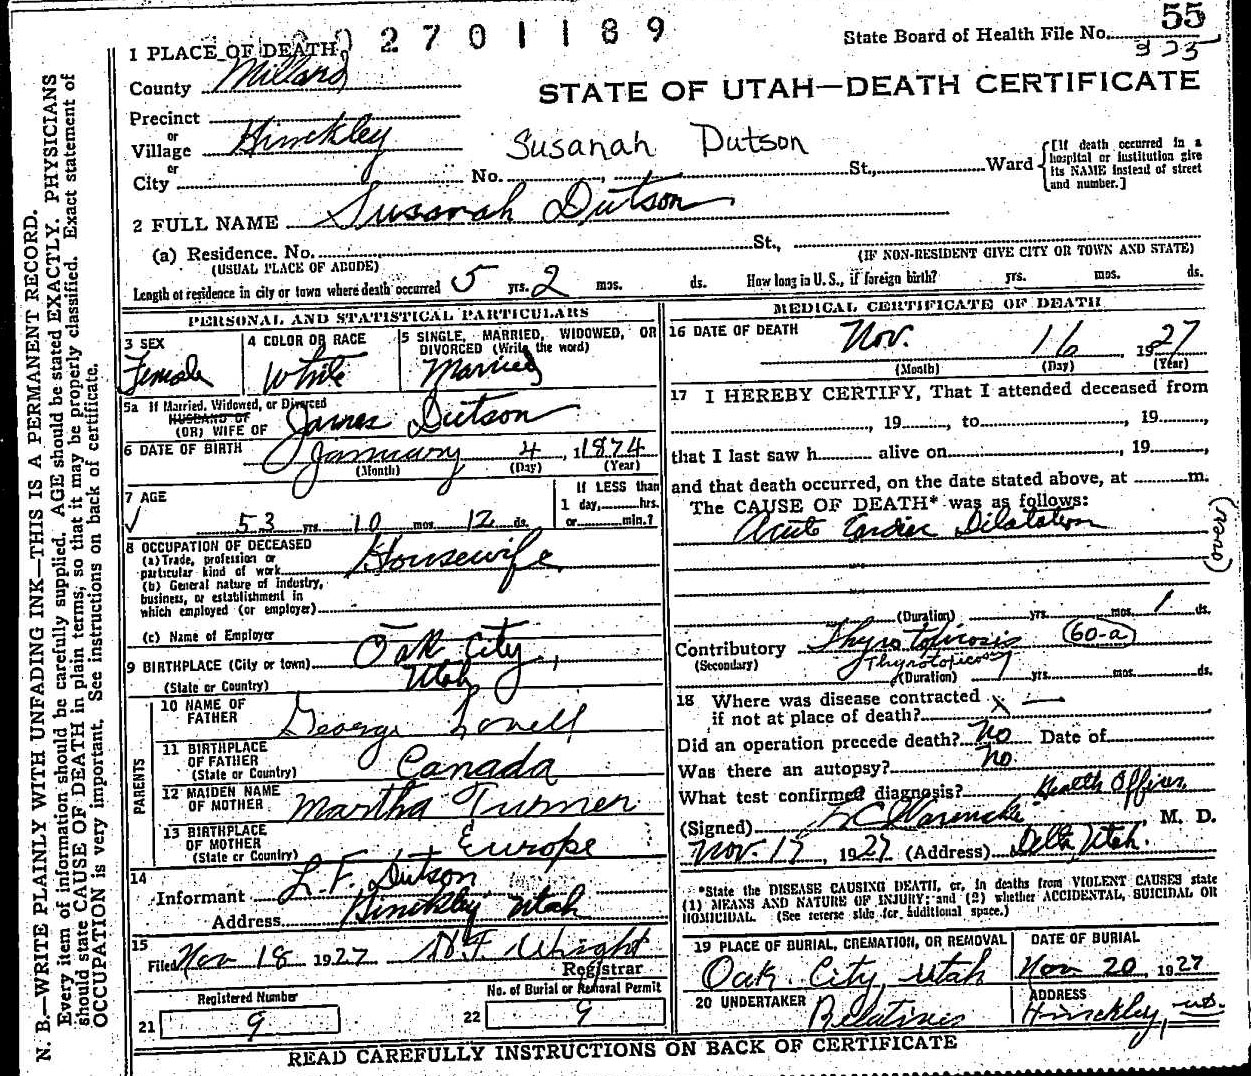 55
2701189
State Board of Health File No. 325
1 PLACE OF DEATH
County Millard
STATE OF UTAH—DEATH CERTIFICATE
Precinct
or
Village Hinckley
Susanah Dutson
or
City No. , St., Ward
[If death occurred in a hospital or institution give its NAME instead of street and number.]
2 FULL NAME Susanah Dutson
(a) Residence. No. St.,
(USUAL PLACE OF ABODE) (IF NON-RESIDENT GIVE CITY OR TOWN AND STATE)
Length of residence in city or town where death occurred 5 yrs. 2 mos. ds. How long in U. S., if foreign birth? yrs. mos. ds.
PERSONAL AND STATISTICAL PARTICULARS
3 SEX
Female
4 COLOR OR RACE
White
5 SINGLE, MARRIED, WIDOWED, OR
DIVORCED (Write the word)
Married
5a If Married, Widowed, or Divorced
HUSBAND OF
(OR) WIFE OF James Dutson
6 DATE OF BIRTH January 4, 1874
(Month) (Day) (Year)
7 AGE
53 yrs. 10 mos. 12 ds.
If LESS than
1 day, hrs.
or min.?
8 OCCUPATION OF DECEASED
(a) Trade, profession or
particular kind of work Housewife
(b) General nature of industry,
business, or establishment in
which employed (or employer)
(c) Name of Employer
9 BIRTHPLACE (City or town) Oak City,
(State or Country) Utah
PARENTS
10 NAME OF
FATHER George Lovell
11 BIRTHPLACE
OF FATHER
(State or Country) Canada
12 MAIDEN NAME
OF MOTHER Martha Turner
13 BIRTHPLACE
OF MOTHER
(State or Country) Europe
14
Informant L. F. Dutson
Address Hinckley Utah
15
Filed Nov 18 1927 Wright
Registrar
Registered Number
21 9
No. of Burial or Removal Permit
22 9
MEDICAL CERTIFICATE OF DEATH
16 DATE OF DEATH
Nov. 16 1927
(Month) (Day) (Year)
17 I HEREBY CERTIFY, That I attended deceased from
, 19 , to , 19 ,
that I last saw h alive on , 19 ,
and that death occurred, on the date stated above, at m.
The CAUSE OF DEATH* was as follows:
Acute Cardiac Dilatation
(over)
(Duration) yrs. mos. 1 ds.
Contributory Thyrotoxicosis 60-a
(Secondary) Thyrotoxicosis
(Duration) yrs. mos. ds.
18 Where was disease contracted
if not at place of death? x —
Did an operation precede death? No Date of
Was there an autopsy? No
What test confirmed diagnosis? Health Officer
(Signed) , M. D.
Nov. 17, 1927 (Address) Delta, Utah.
*State the DISEASE CAUSING DEATH, or, in deaths from VIOLENT CAUSES state
(1) MEANS AND NATURE OF INJURY; and (2) whether ACCIDENTAL, SUICIDAL OR
HOMICIDAL. (See reverse side for additional space.)
19 PLACE OF BURIAL, CREMATION, OR REMOVAL
Oak City, Utah
DATE OF BURIAL
Nov 20, 1927
20 UNDERTAKER
Relatives
ADDRESS
Hinckley, ut.
READ CAREFULLY INSTRUCTIONS ON BACK OF CERTIFICATE
N. B.—WRITE PLAINLY WITH UNFADING INK—THIS IS A PERMANENT RECORD.
Every item of information should be carefully supplied. AGE should be stated EXACTLY. PHYSICIANS
should state CAUSE OF DEATH in plain terms, so that it may be properly classified. Exact statement of
OCCUPATION is very important. See instructions on back of certificate.